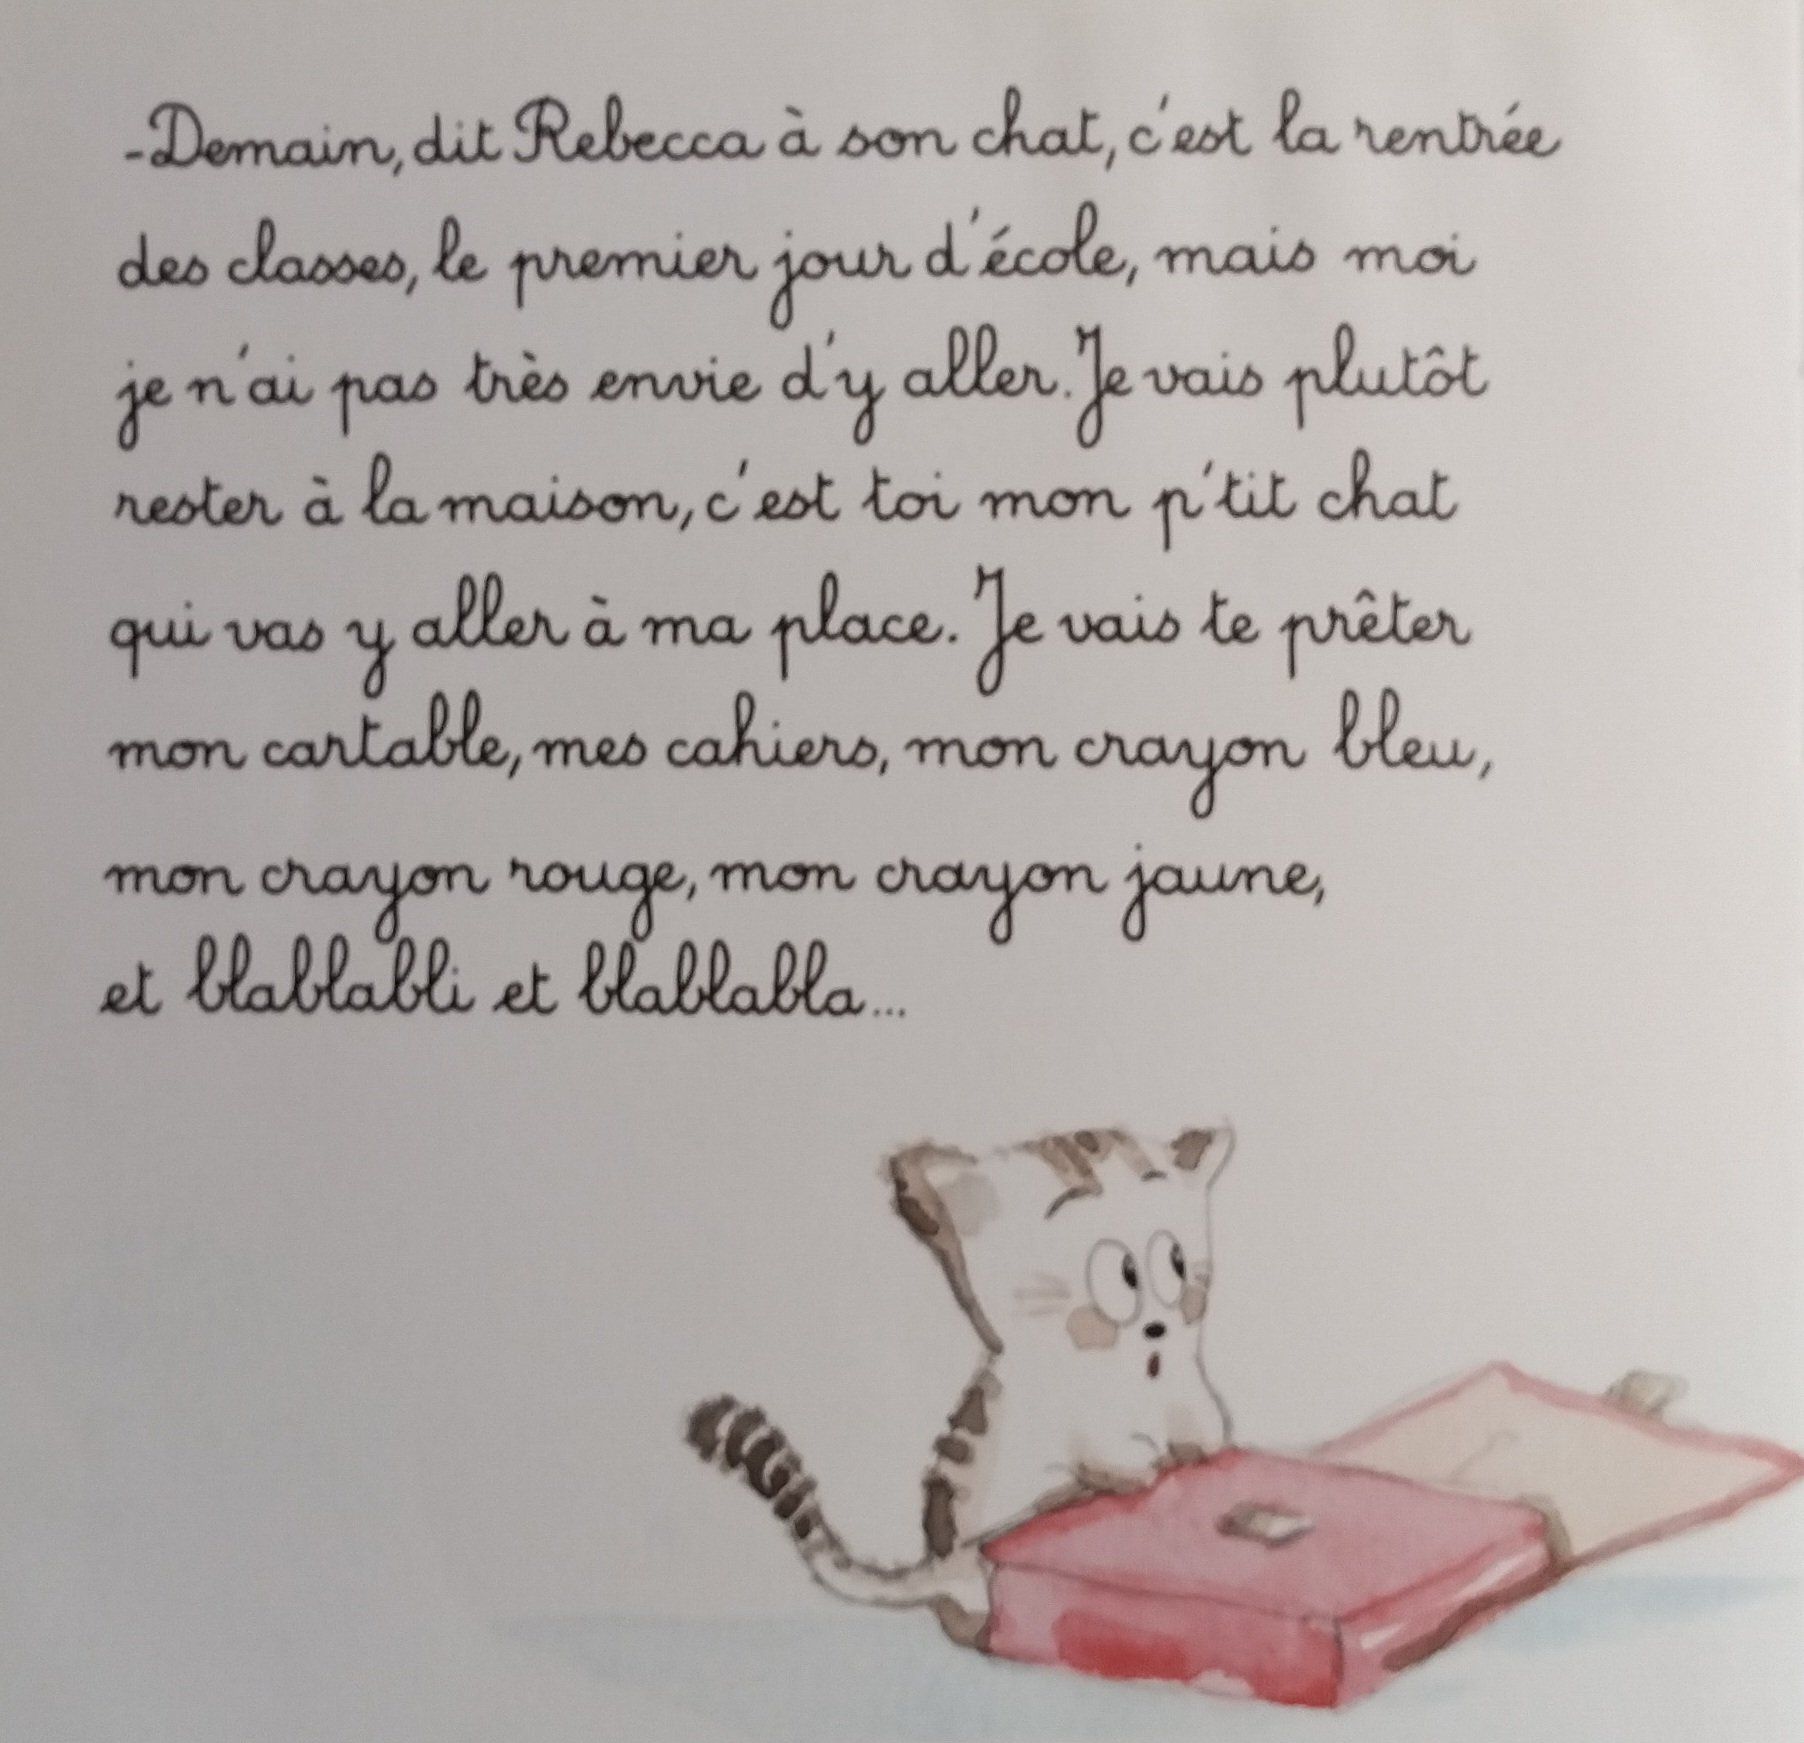 -Demain, dit Rebecca à son chat, c'est la rentrée
des classes, le premier jour d'école, mais moi
je n'ai pas très envie d'y aller. Je vais plutôt
rester à la maison, c'est toi mon p'tit chat
qui vas y aller à ma place. Je vais te prêter
mon cartable, mes cahiers, mon crayon bleu,
mon crayon rouge, mon crayon jaune,
et blablabli et blablabla...